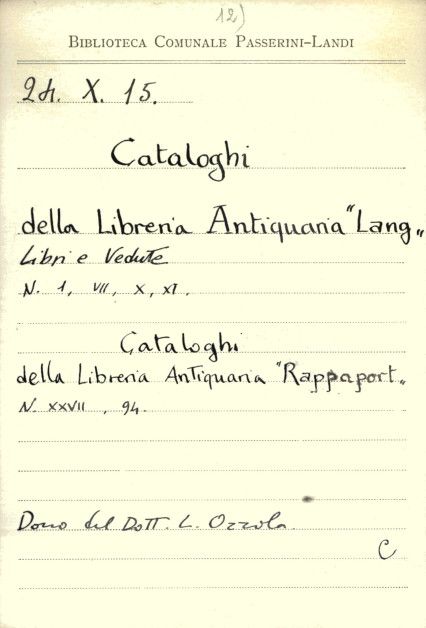 12)
BIBLIOTECA COMUNALE PASSERINI-LANDI
24. X. 15.
Cataloghi
della Libreria Antiquaria "Lang"
Libri e Vedute
N. 1, VII, X, XI.
Cataloghi
della Libreria Antiquaria "Rappaport"
N. XXVII, 94.
Dono del Dott. L. Ozzola
C